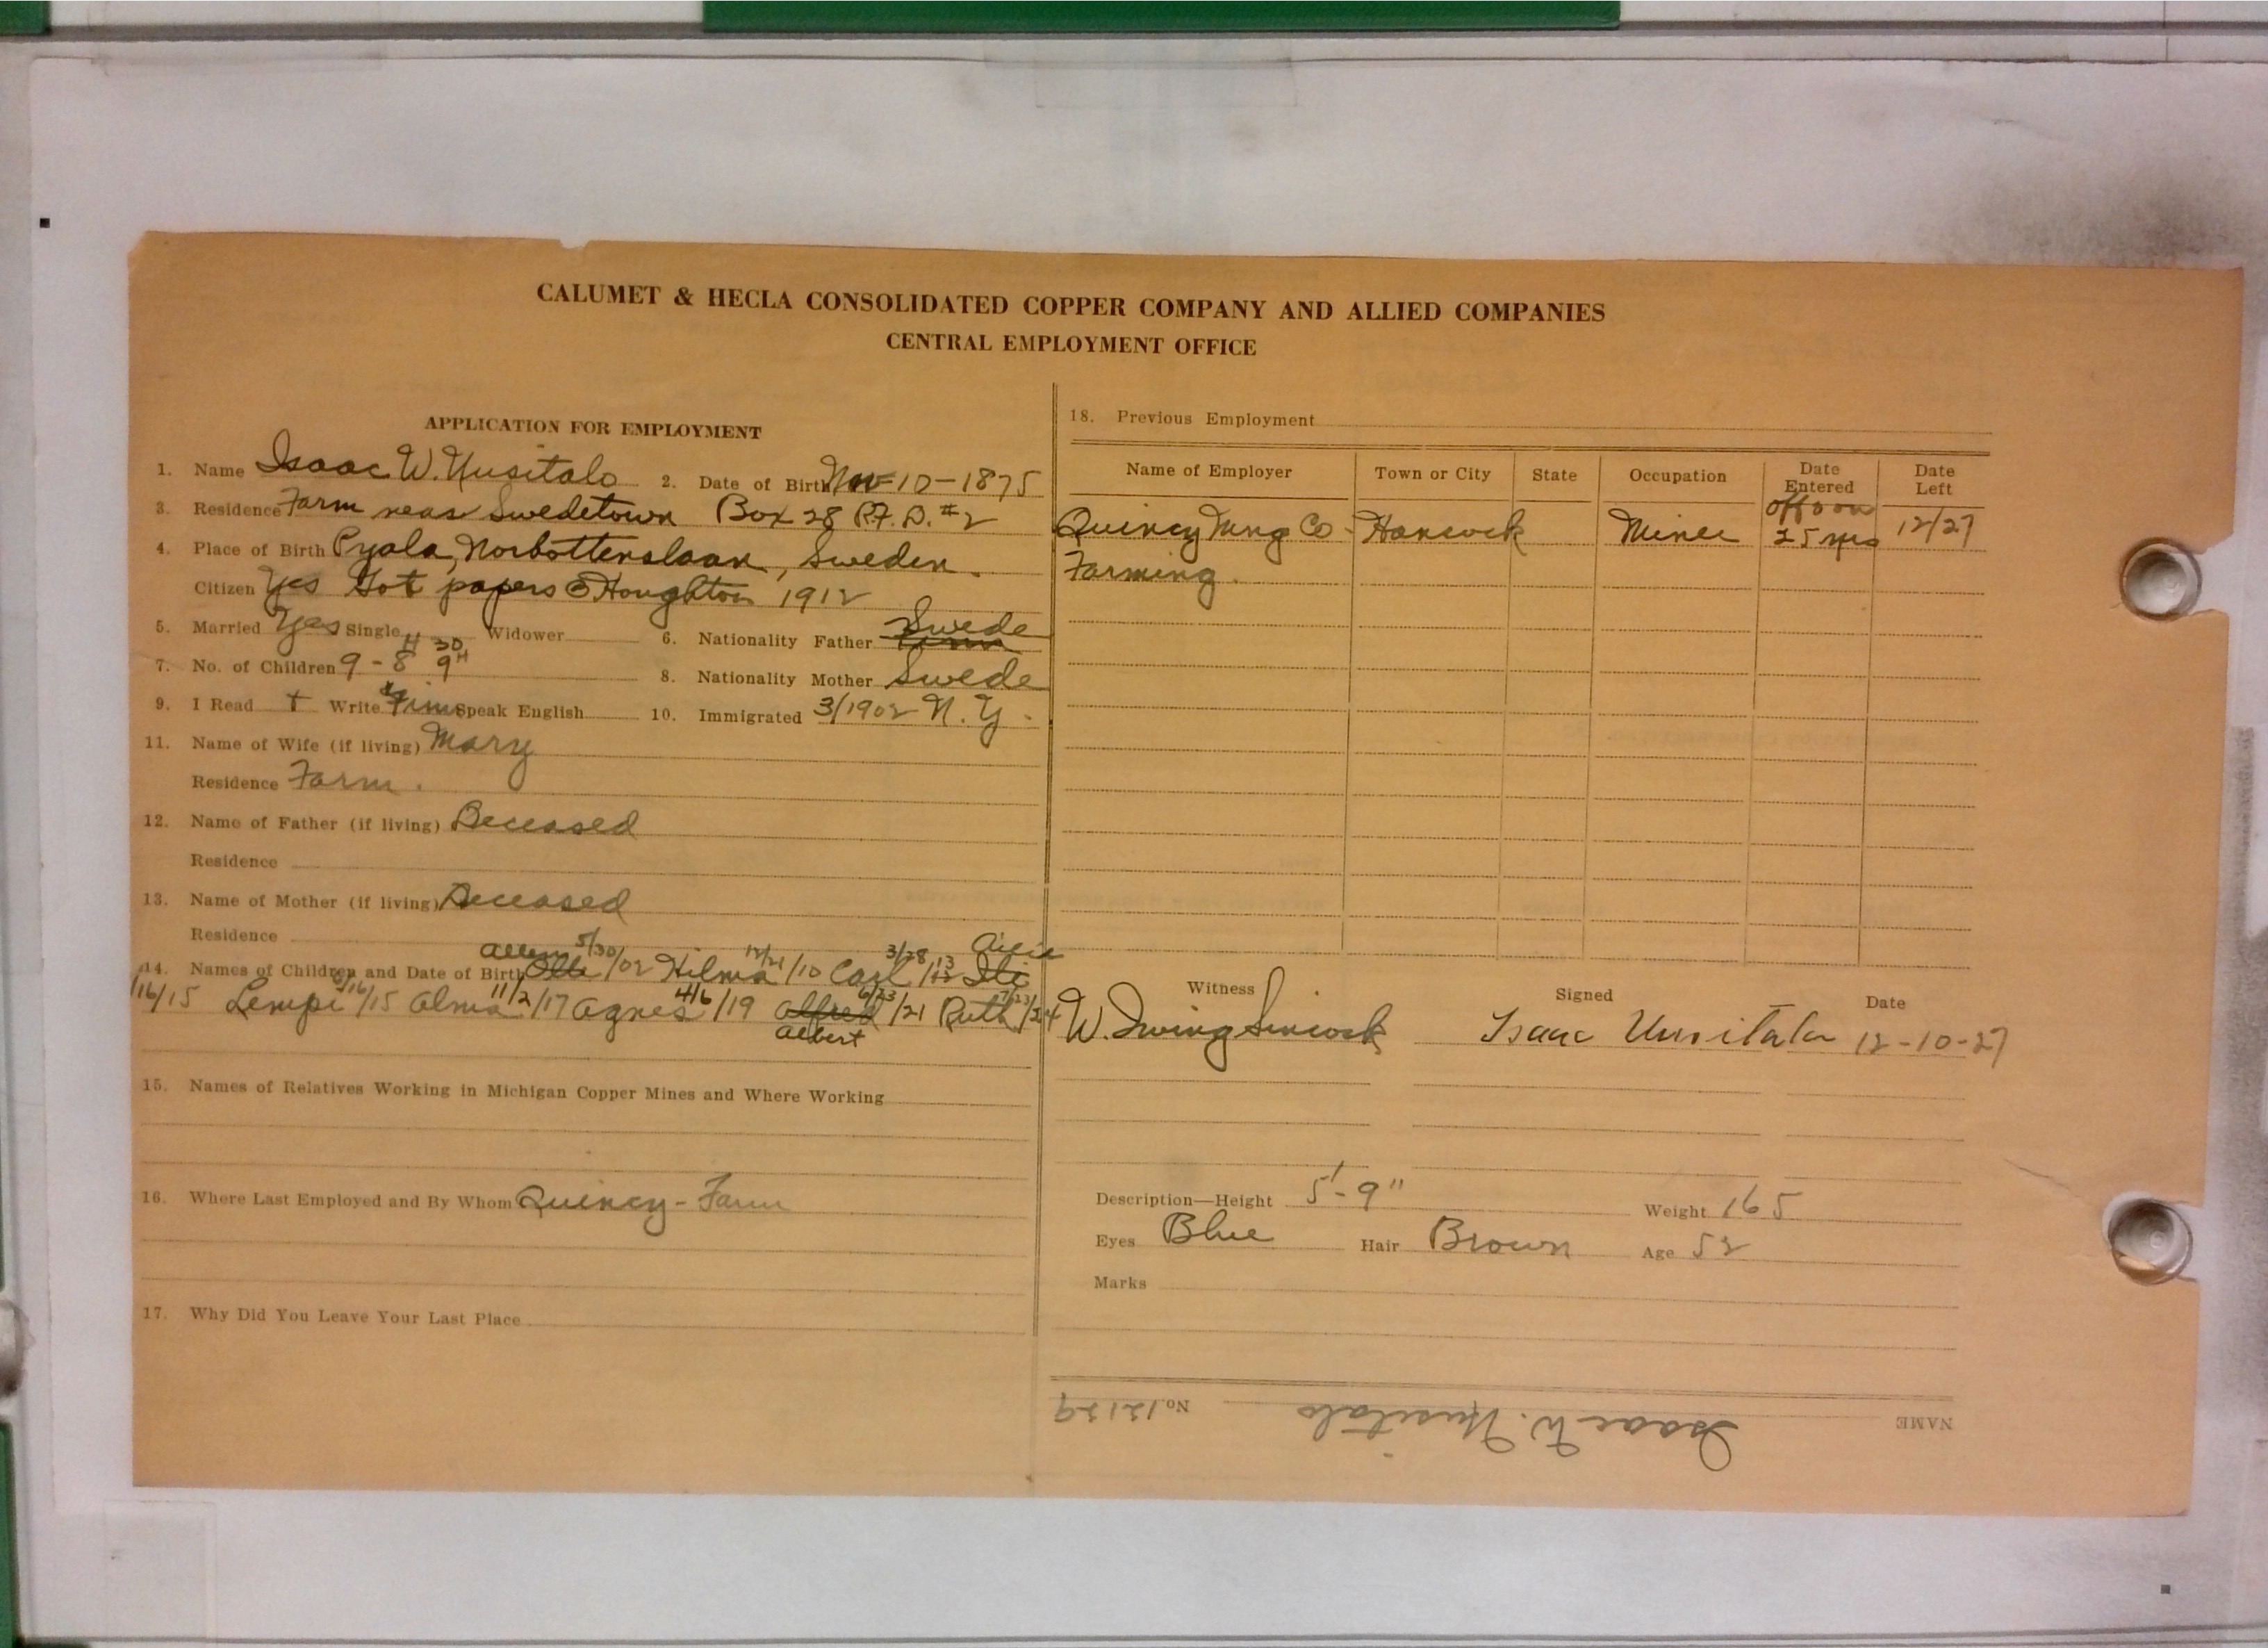 CALUMET & HECLA CONSOLIDATED COPPER COMPANY AND ALLIED COMPANIES
CENTRAL EMPLOYMENT OFFICE
APPLICATION FOR EMPLOYMENT
1. Name Isaac W. Uusitalo 2. Date of Birth Nov-10-1875
3. Residence Farm near Swedetown Box 28 R.F.D. #2
4. Place of Birth Pyala, Norbottenslaan, Sweden.
Citizen Yes Got papers @ Houghton 1912
5. Married Yes Single Widower 6. Nationality Father Swede
7. No. of Children 9 - 8 9 8. Nationality Mother Swede
9. I Read + Write Speak English 10. Immigrated 3/1902 N.Y.
11. Name of Wife (if living) Mary
Residence Farm.
12. Name of Father (if living) Deceased
Residence
13. Name of Mother (if living) Deceased
Residence
14. Names of Children and Date of Birth 5/30/02 Hilma 12/21/10 Carl 3/28/13
/16/15 Lempi /16/15 Alma 11/2/17 Agnes 4/6/19 Alfred /21 Ruth /24
Albert
15. Names of Relatives Working in Michigan Copper Mines and Where Working
16. Where Last Employed and By Whom Quincy - Farm
17. Why Did You Leave Your Last Place
18. Previous Employment
Name of Employer Town or City State Occupation Date Entered Date Left
Quincy Mng Co - Hancock Miner off & on 25 yrs 12/27
Farming.
Witness Signed Date
W. Irving Sincock Isaac Uusitalo 12-10-27
Description—Height 5'-9" Weight 165
Eyes Blue Hair Brown Age 52
Marks
NAME Isaac W. Uusitalo No. 12129